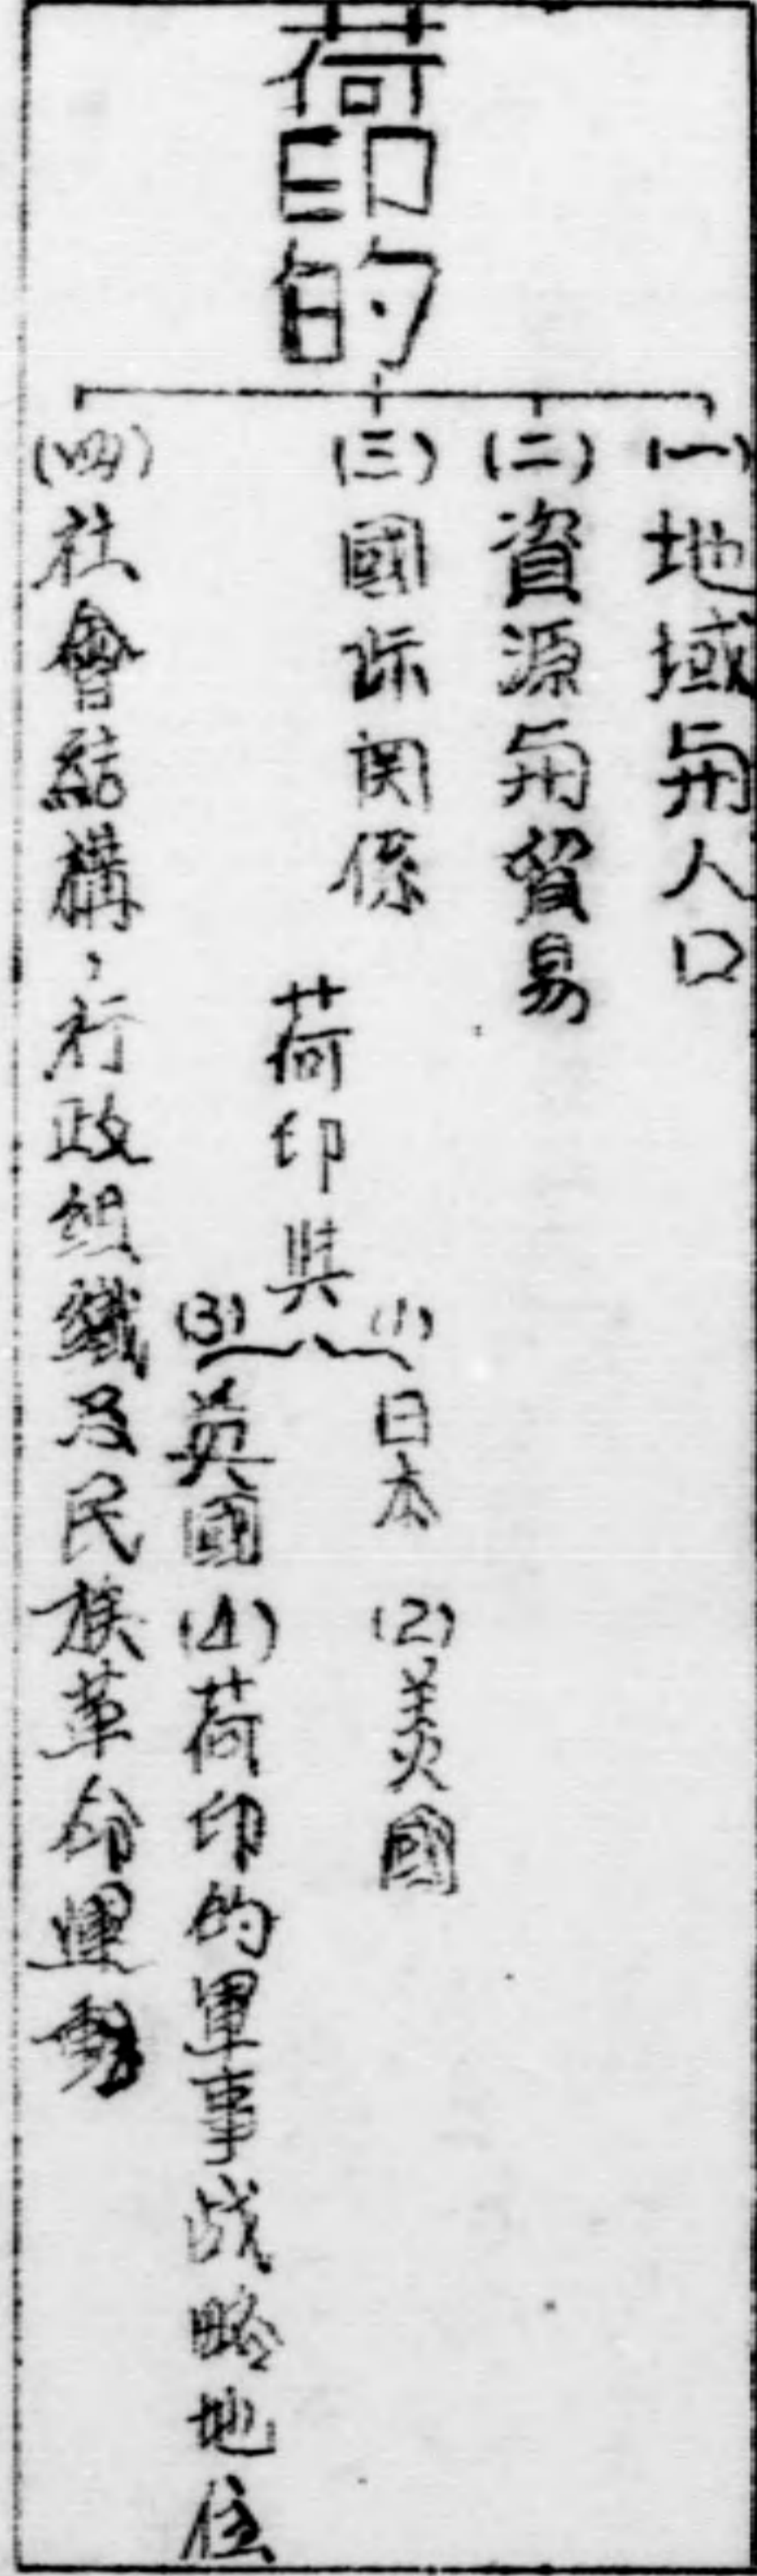 荷印的
(一)地域与人口
(二)資源与貿易
(三)國际関係
荷印與
(1)日本 (2)美國
(3)英國 (4)荷印的軍事战略地位
(四)社會結構,行政組織及民族革命運動